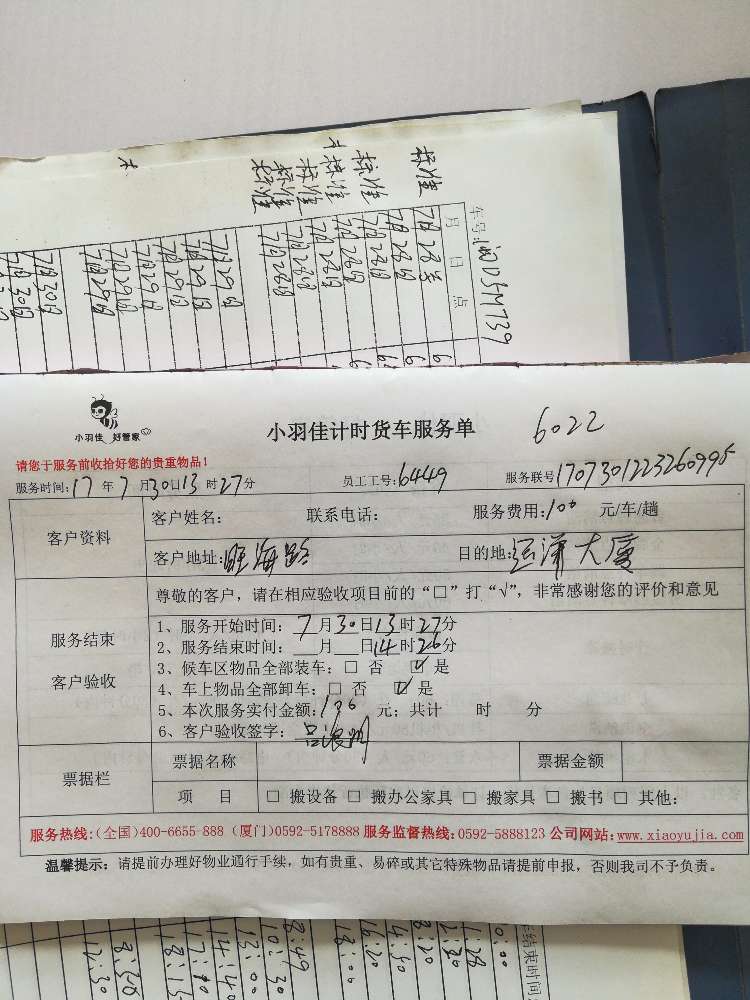 车号:闽D5M739
月 日 点
标准
标准
标准
标准
标准
7月28日
7月28日
7月28日
7月28日
7月28日
7月29日
7月29日
7月29日
7月29日
7月29日
7月29日
7月30日
7月30日
小羽佳 好管家
小羽佳计时货车服务单
6022
请您于服务前收拾好您的贵重物品！
服务时间:17年7月30日13时27分 员工工号:6449 服务联号1707301223260995
客户资料
客户姓名: 联系电话: 服务费用:100 元/车/趟
客户地址: 目的地:远洋大厦
服务结束
客户验收
尊敬的客户，请在相应验收项目前的“□”打“√”，非常感谢您的评价和意见
1、服务开始时间: 7月30日13时27分
2、服务结束时间: 月 日14时26分
3、候车区物品全部装车: □ 否 ☑ 是
4、车上物品全部卸车: □ 否 ☑ 是
5、本次服务实付金额:136 元; 共计 时 分
6、客户验收签字:
票据栏
票据名称 票据金额
项 目 □ 搬设备 □ 搬办公家具 □ 搬家具 □ 搬书 □ 其他:
服务热线:(全国)400-6655-888 (厦门)0592-5178888 服务监督热线:0592-5888123 公司网站:www.xiaoyujia.com
温馨提示: 请提前办理好物业通行手续，如有贵重、易碎或其它特殊物品请提前申报，否则我司不予负责。
结束时间